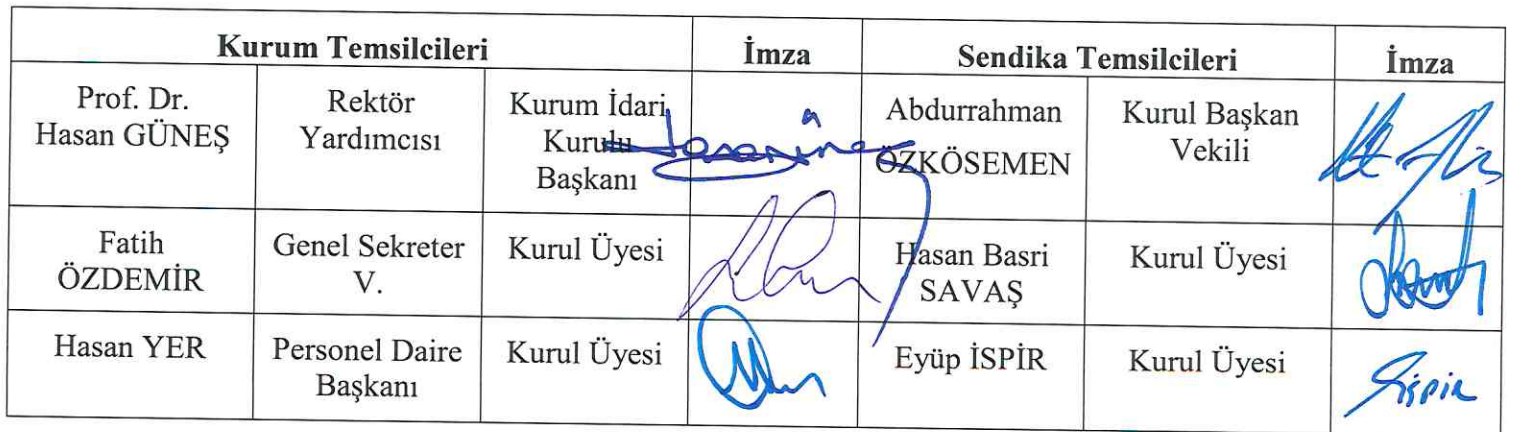 Kurum Temsilcileri İmza Sendika Temsilcileri İmza
Prof. Dr.
Hasan GÜNEŞ
Rektör
Yardımcısı
Kurum İdari
Kurulu
Başkanı
Abdurrahman
ÖZKÖSEMEN
Kurul Başkan
Vekili
Fatih
ÖZDEMİR
Genel Sekreter
V.
Kurul Üyesi
Hasan Basri
SAVAŞ
Kurul Üyesi
Hasan YER
Personel Daire
Başkanı
Kurul Üyesi
Eyüp İSPİR
Kurul Üyesi